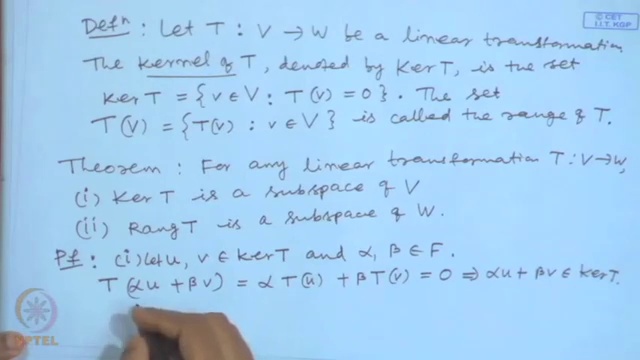 © CET
I.I.T. KGP
Defⁿ : Let T : V → W be a linear transformation
The Kernel of T, denoted by Ker T, is the set
Ker T = {v ∈ V : T(v) = 0}. The set
T(V) = {T(v) : v ∈ V} is called the range of T.
Theorem : For any linear transformation T : V → W,
(i) Ker T is a subspace of V
(ii) Rang T is a subspace of W.
Pf : (i) let u, v ∈ Ker T and α, β ∈ F.
T(αu + βv) = α T(u) + β T(v) = 0 ⇒ αu + βv ∈ Ker T.
NPTEL